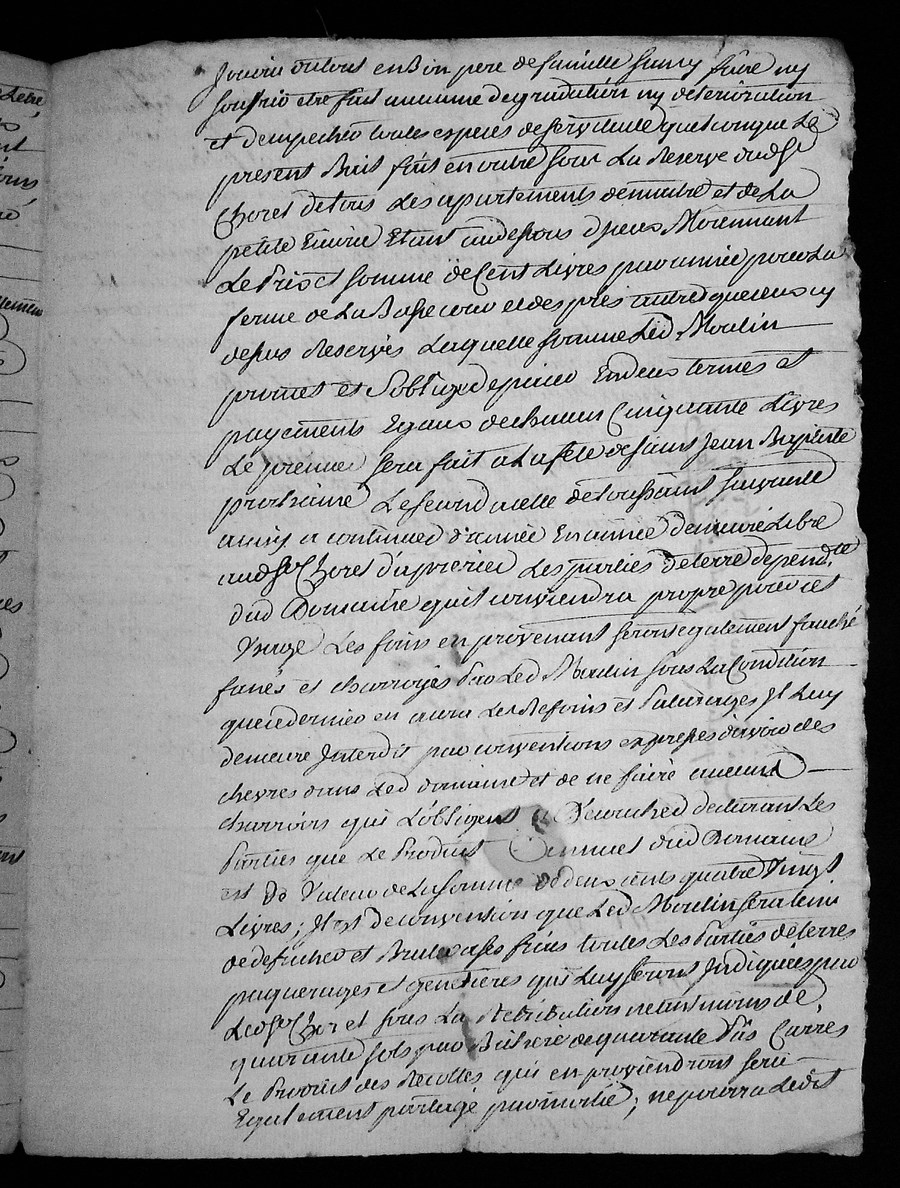 Jouiru dutout en Bon pere de famille sans y faire ny
souffrir etre fait aucune degradation ny deterioration
et d'empecher toutes especes de servitude quelconque Le
present Bail fait en outre sous La Reserve dud Sr
Choret de tous Les apartements de maitre et de La
petite Ecurie Etant au dessous d'yceux Moiennant
Le Prix et somme de Cent Livres par année pour La
ferme de La Basse cour et des prés autres que ceux cy
dessus Reservés Laquelle somme Led. Moulin
promet et s'oblige de paier En deux termes et
payements Egaux de chacun Cinquante Livres
Le premier sera fait a La fete de saint Jean Baptiste
prochaine Le second a celle de Toussaint suivante
ainsy a continuer d'année En année demeure Libre
aud Sr Choret d'aprerier Les parties de terre depend.te
dud Domaine qu'il conviendra propre pour cet
Usage Les foins en provenant seront egalement fauché
fanés et charroyés Par Led Moulin sous La Condition
que ce dernier en aura Les Refoins et Paturages Il Luy
demeure Interdit par conventions expresses d'avoir des
chevres dans Led domaine et de ne faire aucuns
charrois qui L'obligent a Decoucher declarant Les
Parties que Le Produit annuel dud Domaine
est De Valeur de La somme de deux cents quatre Vingt
Livres; Il est de convention que Led Moulin sera tenu
de defricher et Bruler a ses frais toutes Les Parties de terres
paquerages et genetieres qui Luy seront Indiquées par
Led Sr Choret sous La Retribution neanmoins de
quarante sols par de quarante Pas Carrés
Le Produit des Recoltes qui en proviendront sera
Egalement partagé par moitié; ne pourra Ledit